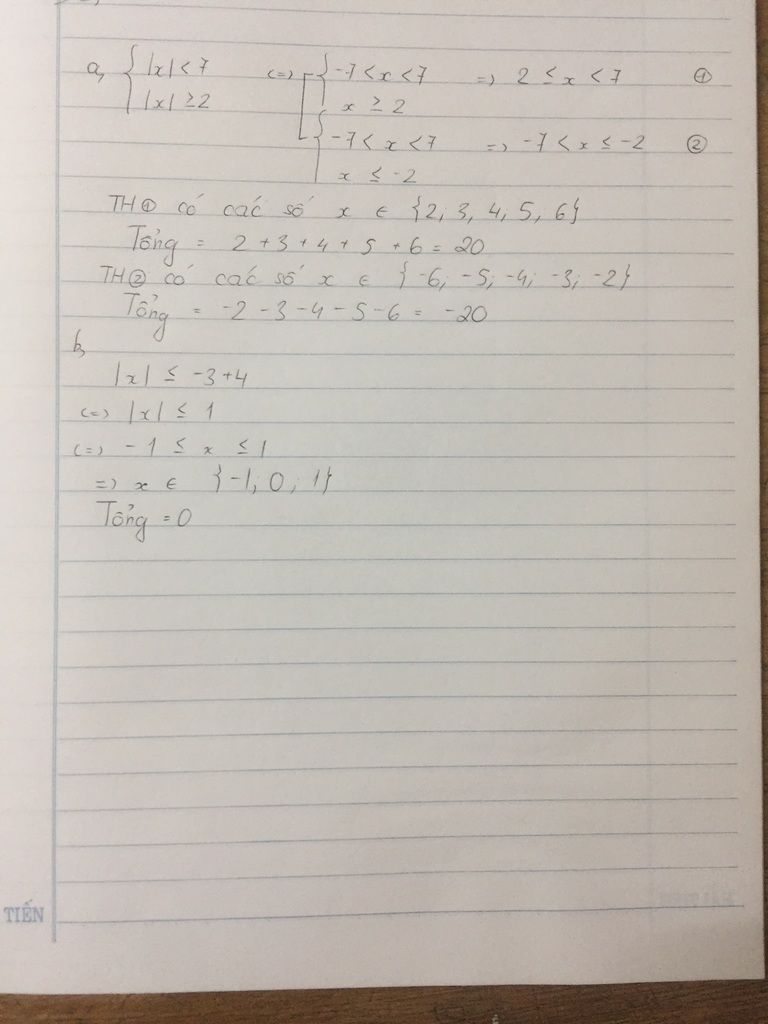 a, { |x| < 7 (=) [ { -7 < x < 7 =) 2 ≤ x < 7 ①
|x| ≥ 2 x ≥ 2
{ -7 < x < 7 =) -7 < x ≤ -2 ②
x ≤ -2
TH① có các số x ∈ {2; 3, 4; 5, 6}
Tổng = 2 + 3 + 4 + 5 + 6 = 20
TH② có các số x ∈ {-6; -5; -4; -3; -2}
Tổng = -2 - 3 - 4 - 5 - 6 = -20
b,
|x| ≤ -3 + 4
(=) |x| ≤ 1
(=) -1 ≤ x ≤ 1
=) x ∈ {-1; 0; 1}
Tổng = 0
TIẾN